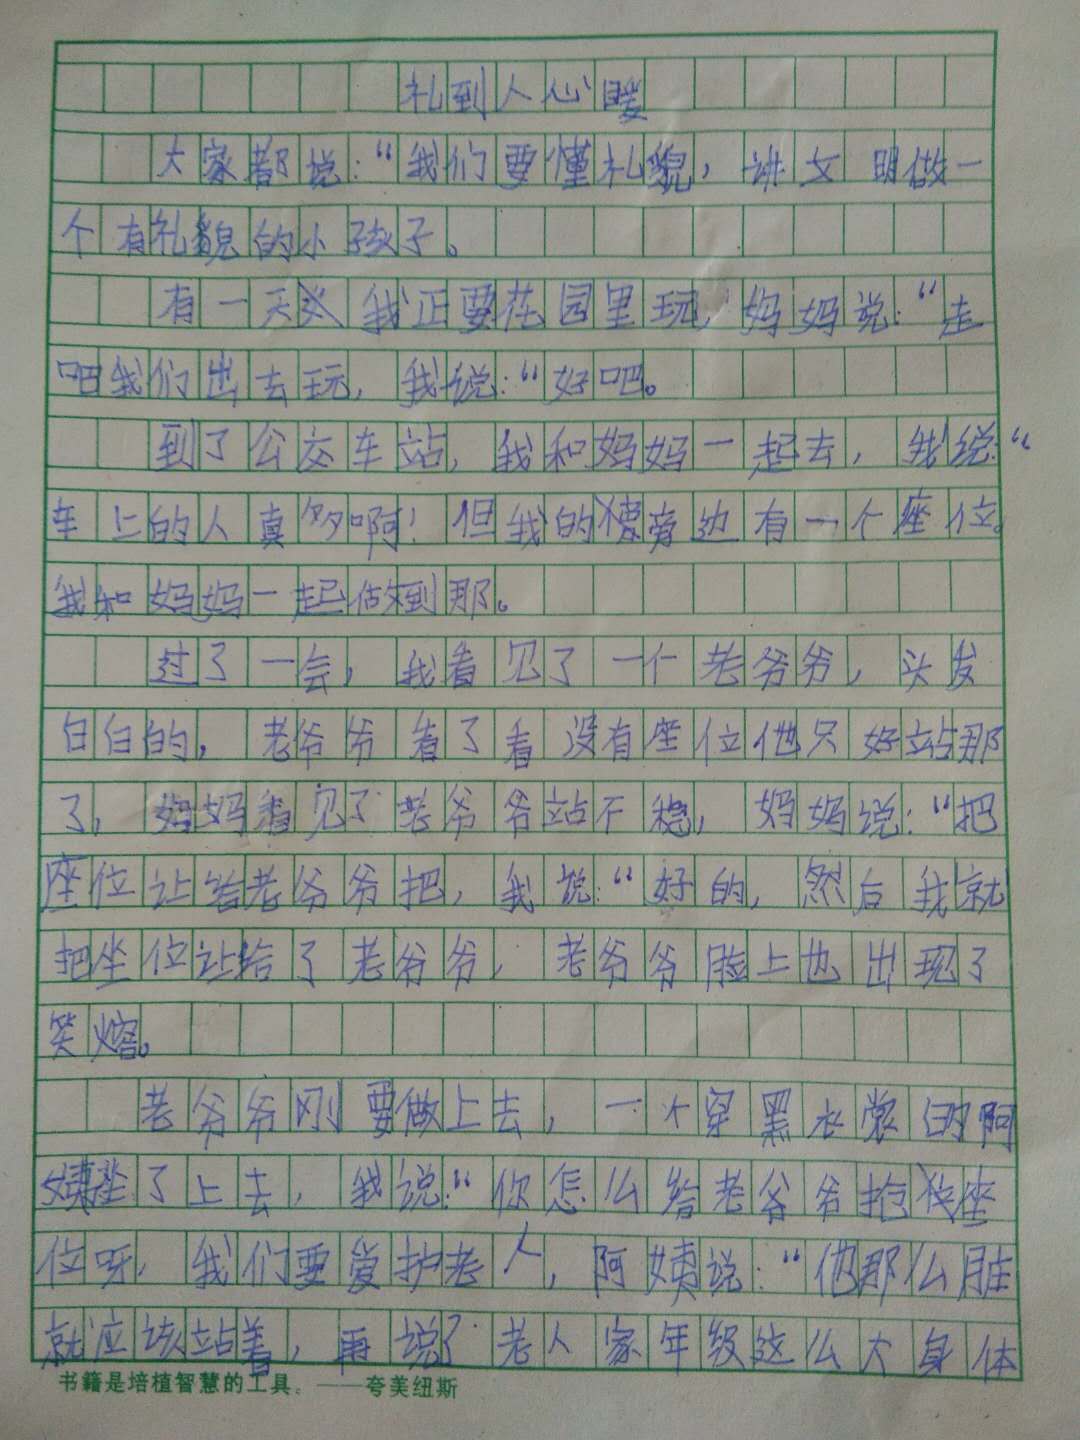 礼到人心暖
大家都说：“我们要懂礼貌，讲文明做一
个有礼貌的小孩子。
有一天 我正要花园里玩，妈妈说：“走
吧我们出去玩，我说：“好吧。
到了公交车站，我和妈妈一起去，我说：“
车上的人真多啊！但我的旁边有一个座位。
我和妈妈一起做到那。
过了一会，我看见了一个老爷爷，头发
白白的，老爷爷看了看没有座位他只好站那
了，妈妈看见了老爷爷站不稳，妈妈说：“把
座位让给老爷爷把，我说：“好的，然后我就
把坐位让给了老爷爷，老爷爷脸上也出现了
笑熔。
老爷爷刚要做上去，一个穿黑衣裳的阿
姨坐了上去，我说：“你怎么给老爷爷抢座
位呀，我们要爱护老人，阿姨说：“他那么脏
就应该站着，再说了老人家年级这么大身体
书籍是培植智慧的工具。——夸美纽斯